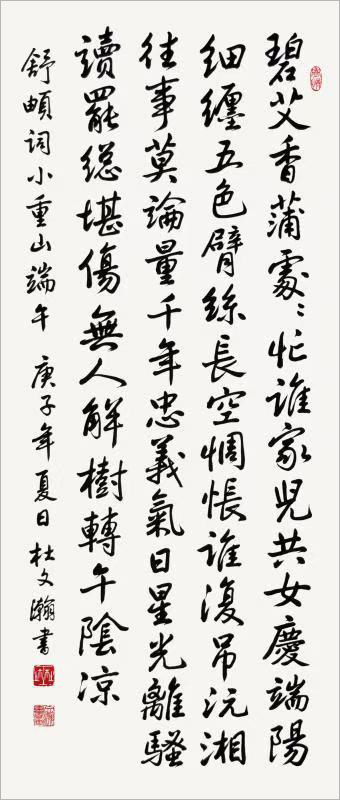 碧艾香蒲處〻忙誰家兒共女慶端陽
細纏五色臂絲長空惆悵誰復吊沅湘
往事莫論量千年忠義氣日星光離騷
讀罷総堪傷無人解樹轉午陰涼
舒頔詞小重山端午 庚子年夏日杜文瀚書